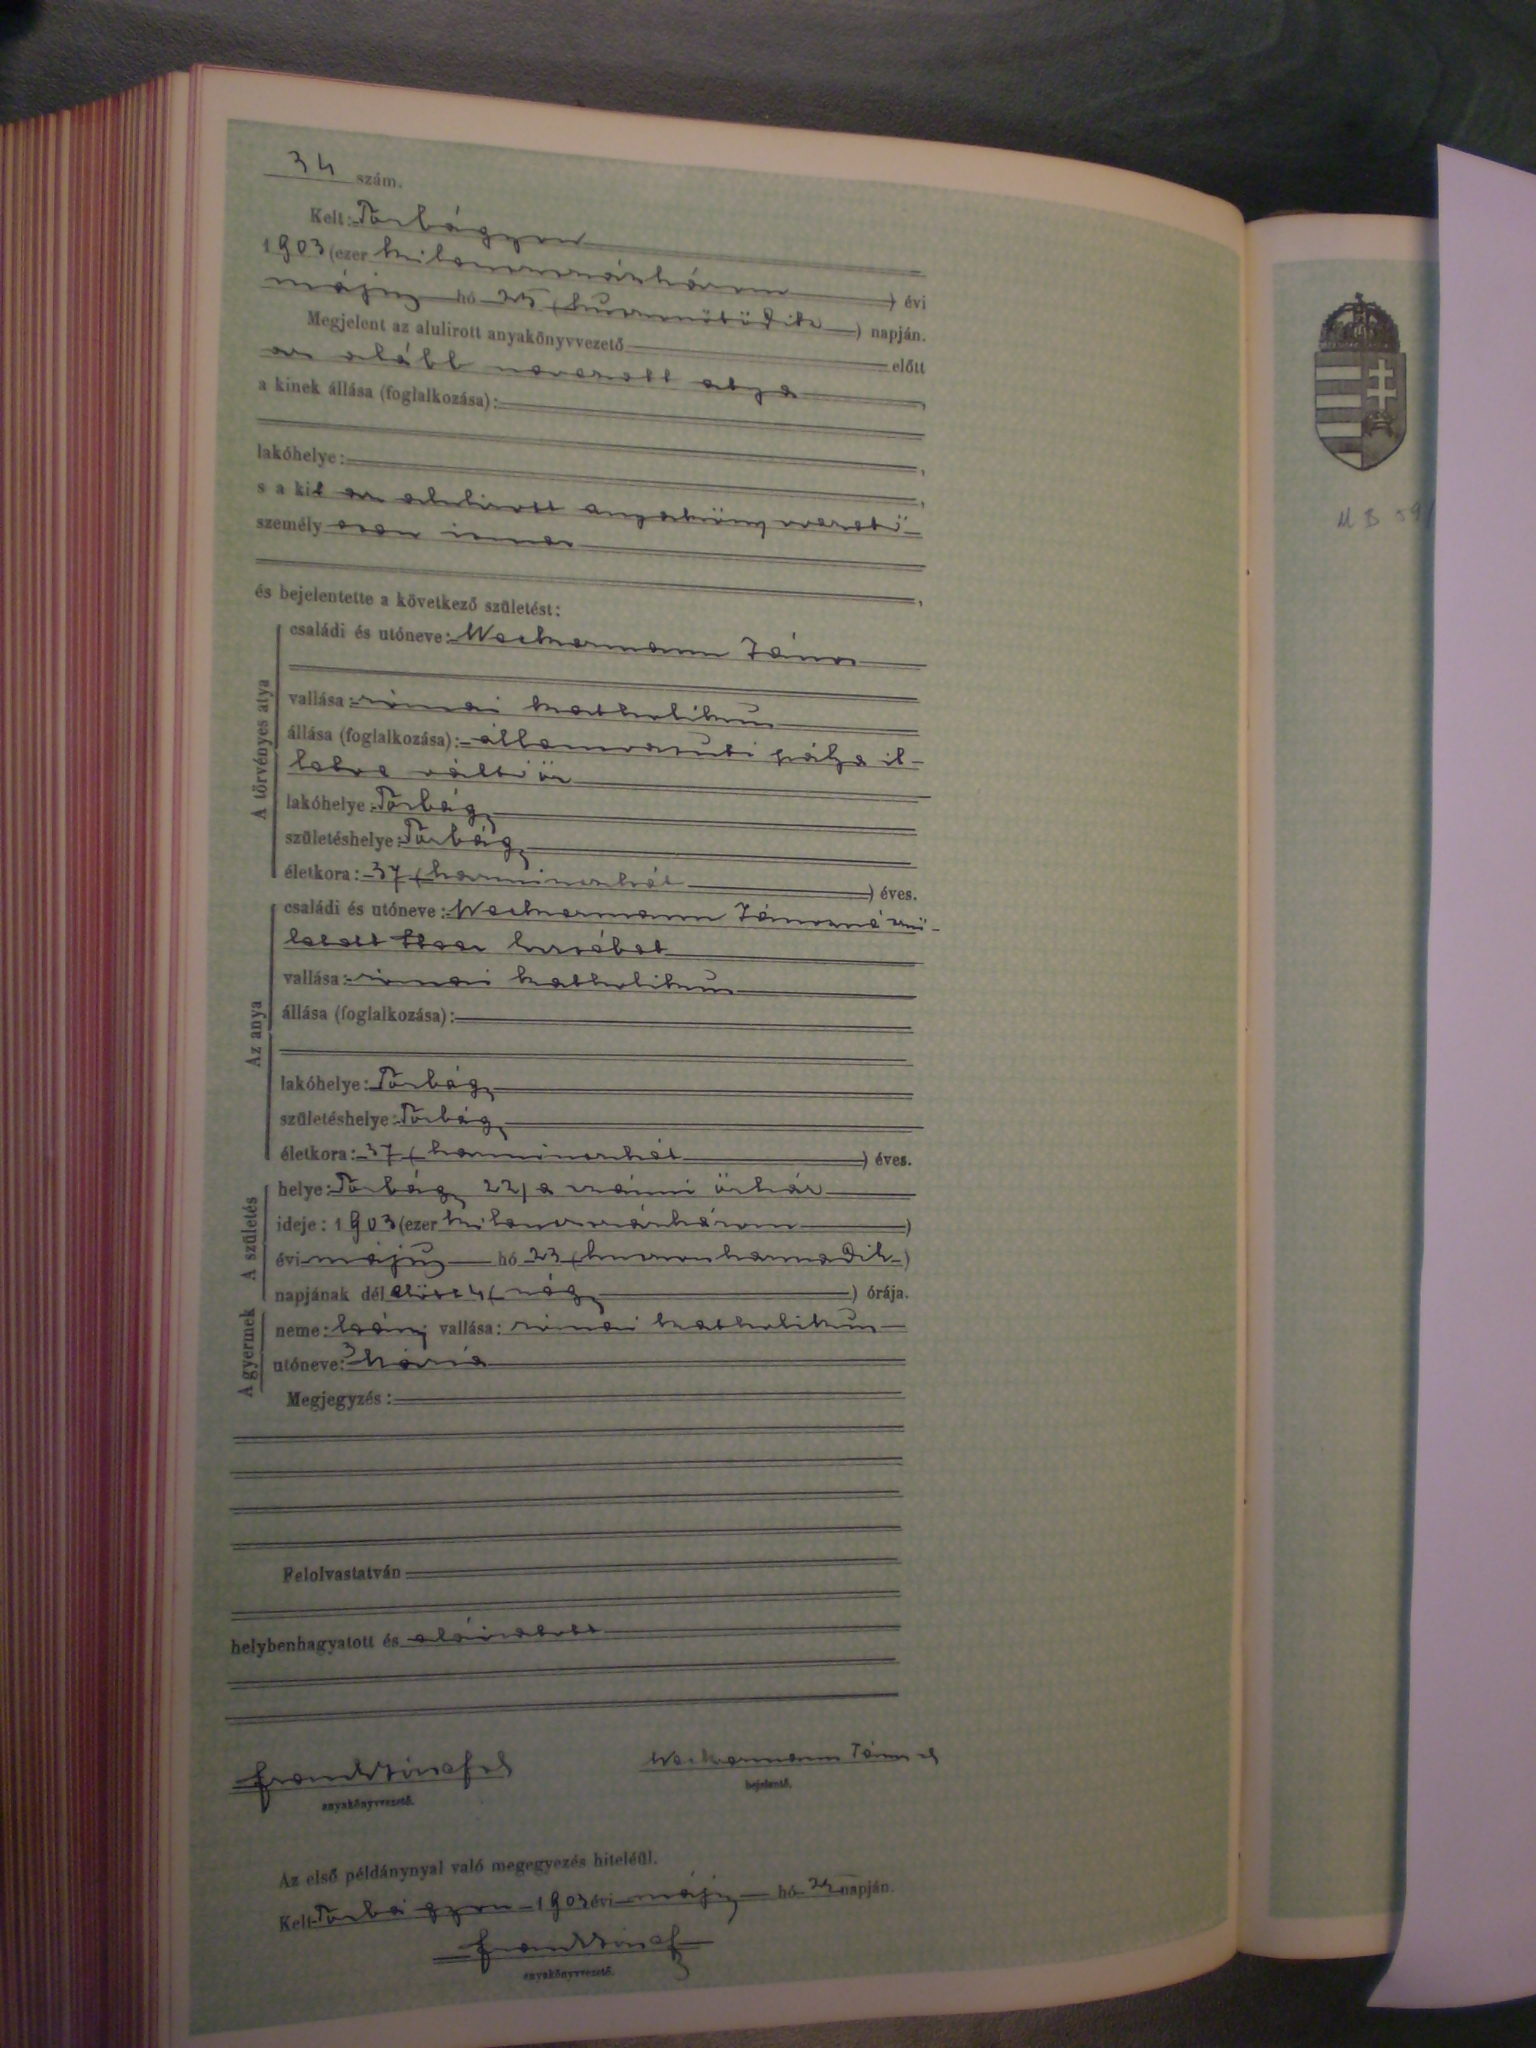 34 szám.
Kelt: Torbágyon
1903 (ezer kilenczszázhárom) évi
május hó 25 (huszonötödik) napján.
Megjelent az alulirott anyakönyvvezető előtt
az alább nevezett atya,
a kinek állása (foglalkozása):
,
lakóhelye: ,
s a kit az alulirott anyakönyvvezető
személy
,
és bejelentette a következő születést:
A törvényes atya
családi és utóneve: Wackermann János
vallása: római katholikus
állása (foglalkozása): államvasuti pálya il-
letve váltóőr
lakóhelye: Torbágy
születéshelye: Torbágy
életkora: 37 (harminczhét) éves.
Az anya
családi és utóneve: Wackermann Jánosné szü-
letett Erzsébet
vallása: római katholikus
állása (foglalkozása):
lakóhelye: Torbágy
születéshelye: Torbágy
életkora: 37 (harminczhét) éves.
A születés
helye: Torbágy 22/a számú őrház
ideje: 1903 (ezer kilenczszázhárom)
évi május hó 23 (huszonharmadik)
napjának dél előtt 4 (négy) órája.
A gyermek
neme: leány vallása: római katholikus
utóneve: Mária
Megjegyzés:
Felolvastatván
helybenhagyatott és aláiratott
Wackermann János
anyakönyvvezető. bejelentő.
Az első példánynyal való megegyezés hiteléül.
Kelt Torbágyon 1903 évi május hó 25 napján.
anyakönyvvezető.